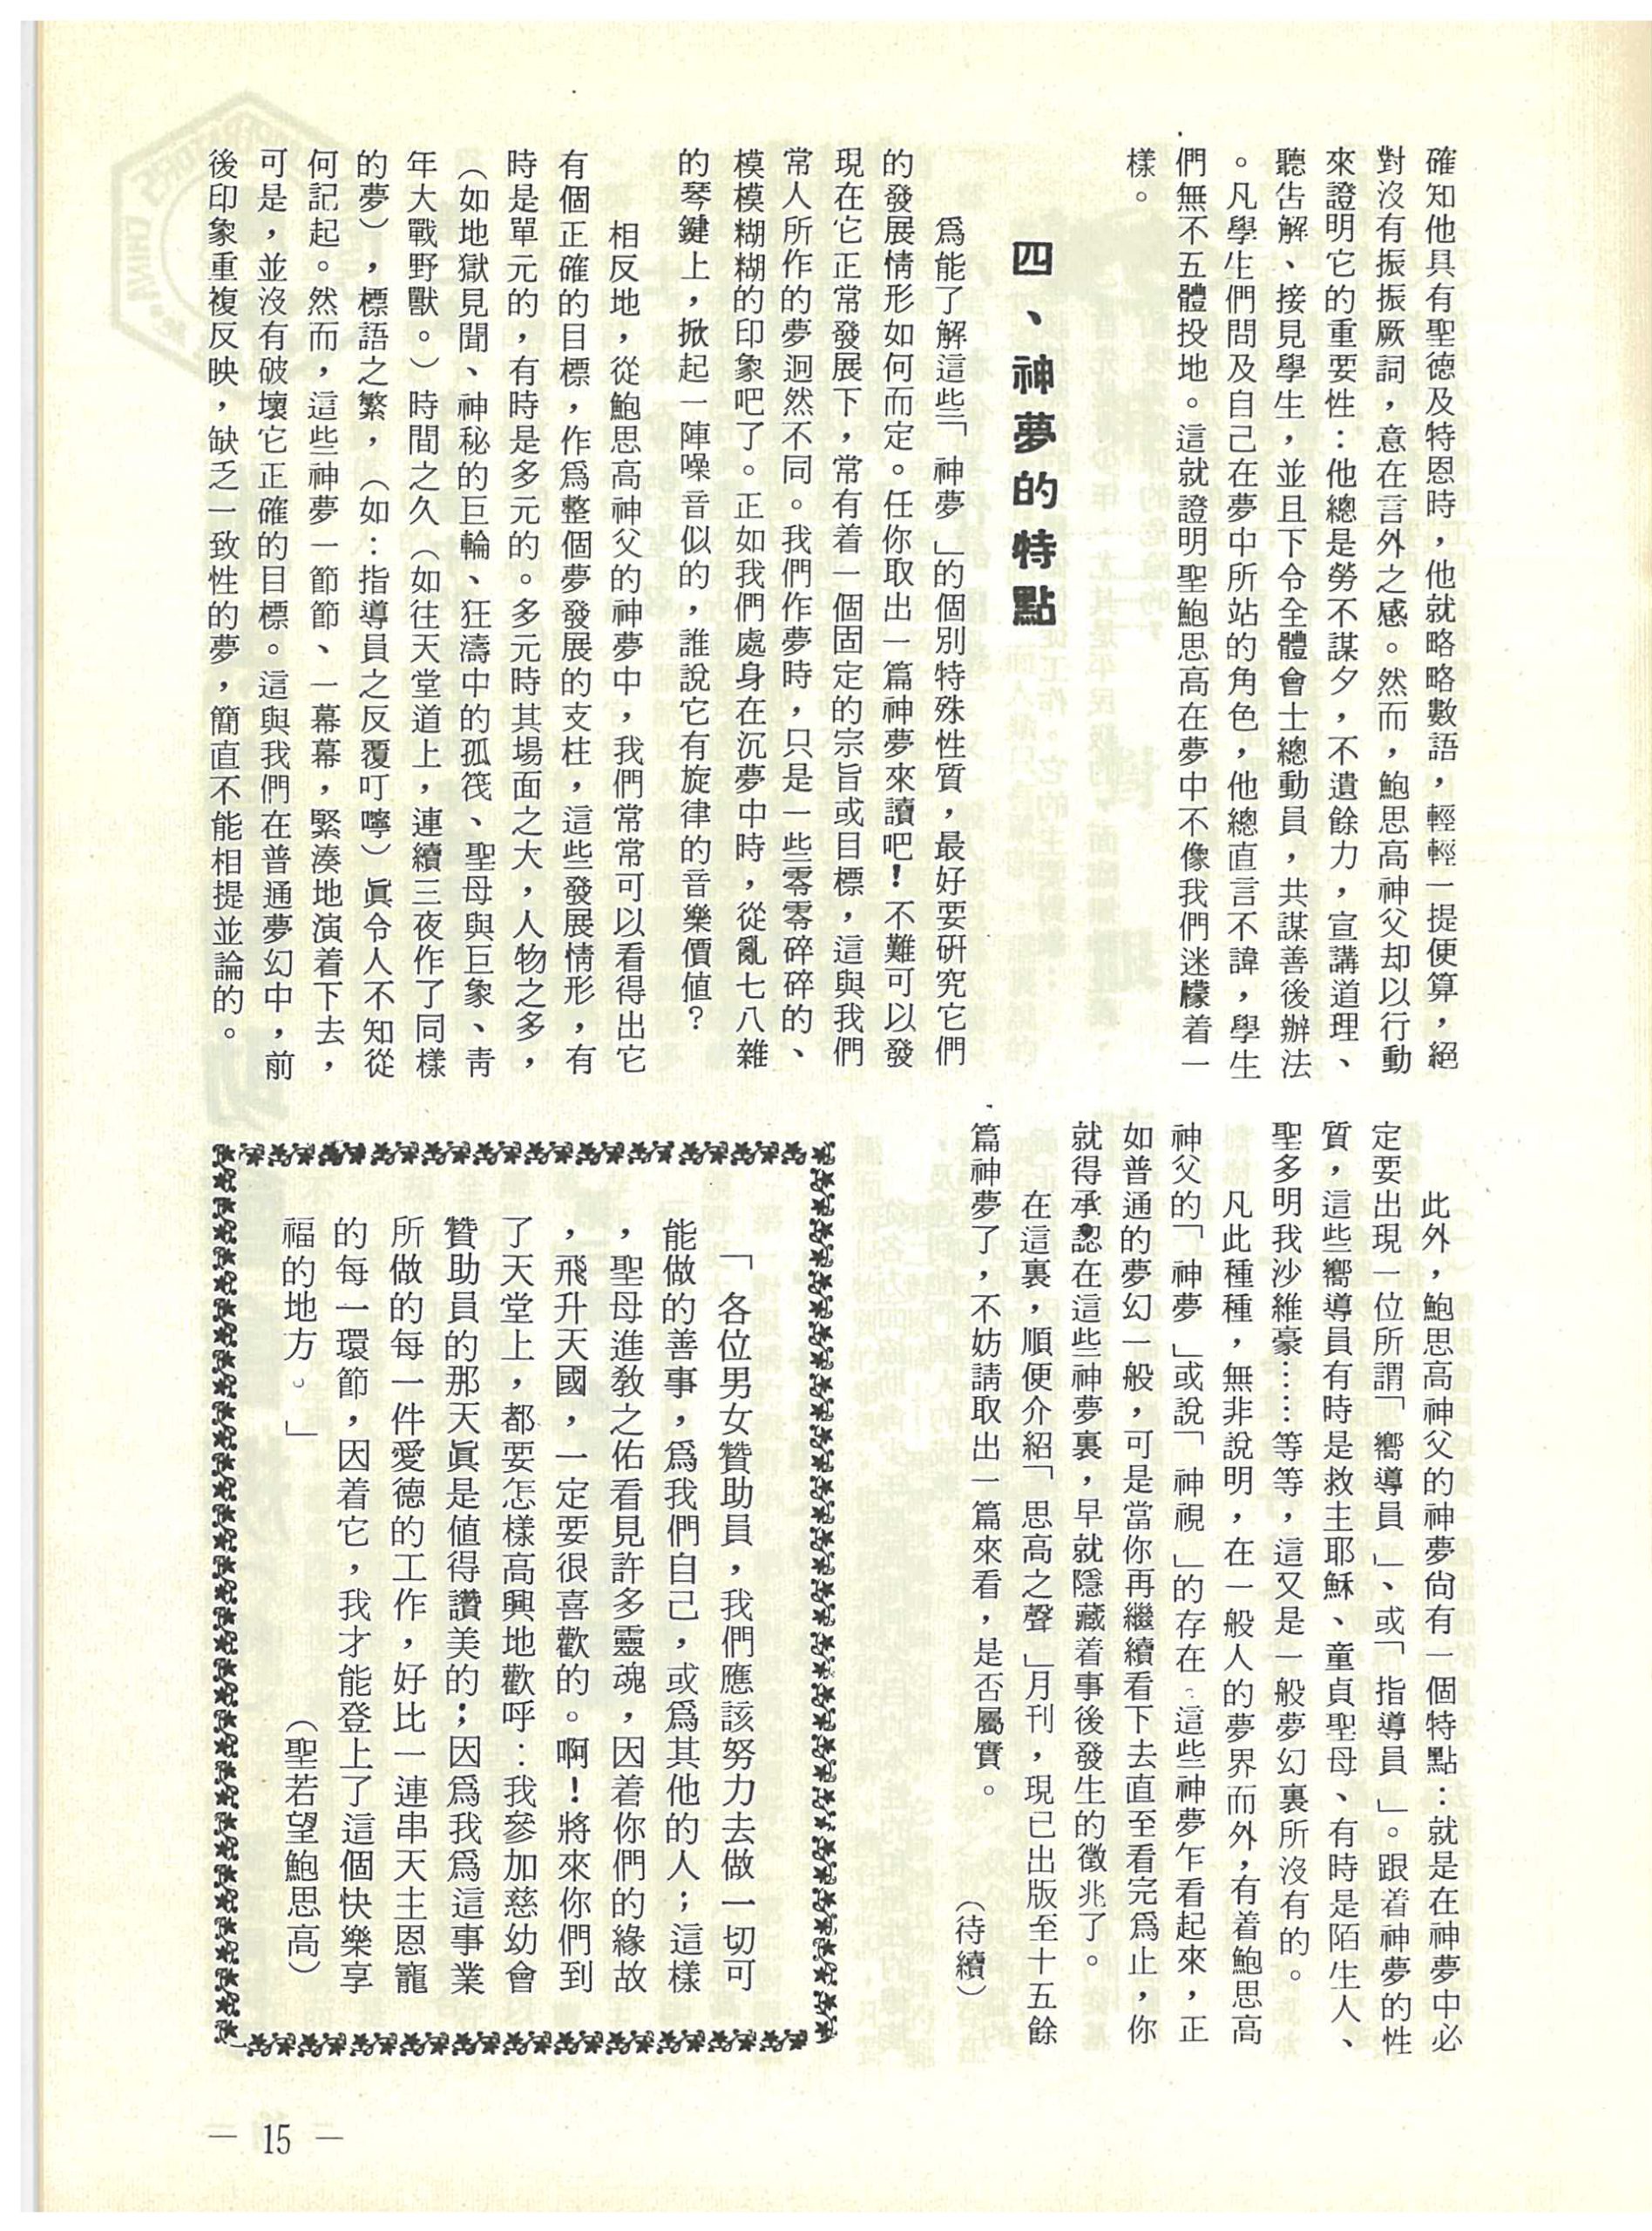 確知他具有聖德及特恩時，他就略略數語，輕輕一提便算，絕
對沒有振振厥詞，意在言外之感。然而，鮑思高神父却以行動
來證明它的重要性：他總是勞不謀夕，不遺餘力，宣講道理、
聽吿解、接見學生，並且下令全體會士總動員，共謀善後辦法
。凡學生們問及自己在夢中所站的角色，他總直言不諱，學生
們無不五體投地。這就證明聖鮑思高在夢中不像我們迷朦着一
樣。
四、神夢的特點
爲能了解這些「神夢」的個別特殊性質，最好要研究它們
的發展情形如何而定。任你取出一篇神夢來讀吧！不難可以發
現在它正常發展下，常有着一個固定的宗旨或目標，這與我們
常人所作的夢迥然不同。我們作夢時，只是一些零零碎碎的、
模模糊糊的印象吧了。正如我們處身在沉夢中時，從亂七八雜
的琴鍵上，掀起一陣噪音似的，誰說它有旋律的音樂價值？
相反地，從鮑思高神父的神夢中，我們常常可以看得出它
有個正確的目標，作爲整個夢發展的支柱，這些發展情形，有
時是單元的，有時是多元的。多元時其場面之大，人物之多，
（如地獄見聞、神秘的巨輪、狂濤中的孤筏、聖母與巨象、靑
年大戰野獸。）時間之久（如往天堂道上，連續三夜作了同樣
的夢），標語之繁，（如：指導員之反覆叮嚀）眞令人不知從
何記起。然而，這些神夢一節節、一幕幕，緊湊地演着下去，
可是，並沒有破壞它正確的目標。這與我們在普通夢幻中，前
後印象重複反映，缺乏一致性的夢，簡直不能相提並論的。
此外，鮑思高神父的神夢尙有一個特點：就是在神夢中必
定要出現一位所謂「嚮導員」、或「指導員」。跟着神夢的性
質，這些嚮導員有時是救主耶穌、童貞聖母、有時是陌生人、
聖多明我沙維豪……等等，這又是一般夢幻裏所沒有的。
凡此種種，無非說明，在一般人的夢界而外，有着鮑思高
神父的「神夢」或說「神視」的存在。這些神夢乍看起來，正
如普通的夢幻一般，可是當你再繼續看下去直至看完爲止，你
就得承認在這些神夢裏，早就隱藏着事後發生的徵兆了。
在這裏，順便介紹「思高之聲」月刊，現已出版至十五餘
篇神夢了，不妨請取出一篇來看，是否屬實。
（待續）
「各位男女贊助員，我們應該努力去做一切可
能做的善事，爲我們自己，或爲其他的人；這樣
，聖母進教之佑看見許多靈魂，因着你們的緣故
，飛升天國，一定要很喜歡的。啊！將來你們到
了天堂上，都要怎樣高興地歡呼：我參加慈幼會
贊助員的那天眞是値得讚美的；因爲我爲這事業
所做的每一件愛德的工作，好比一連串天主恩寵
的每一環節，因着它，我才能登上了這個快樂享
福的地方。」
（聖若望鮑思高）
— 15 —